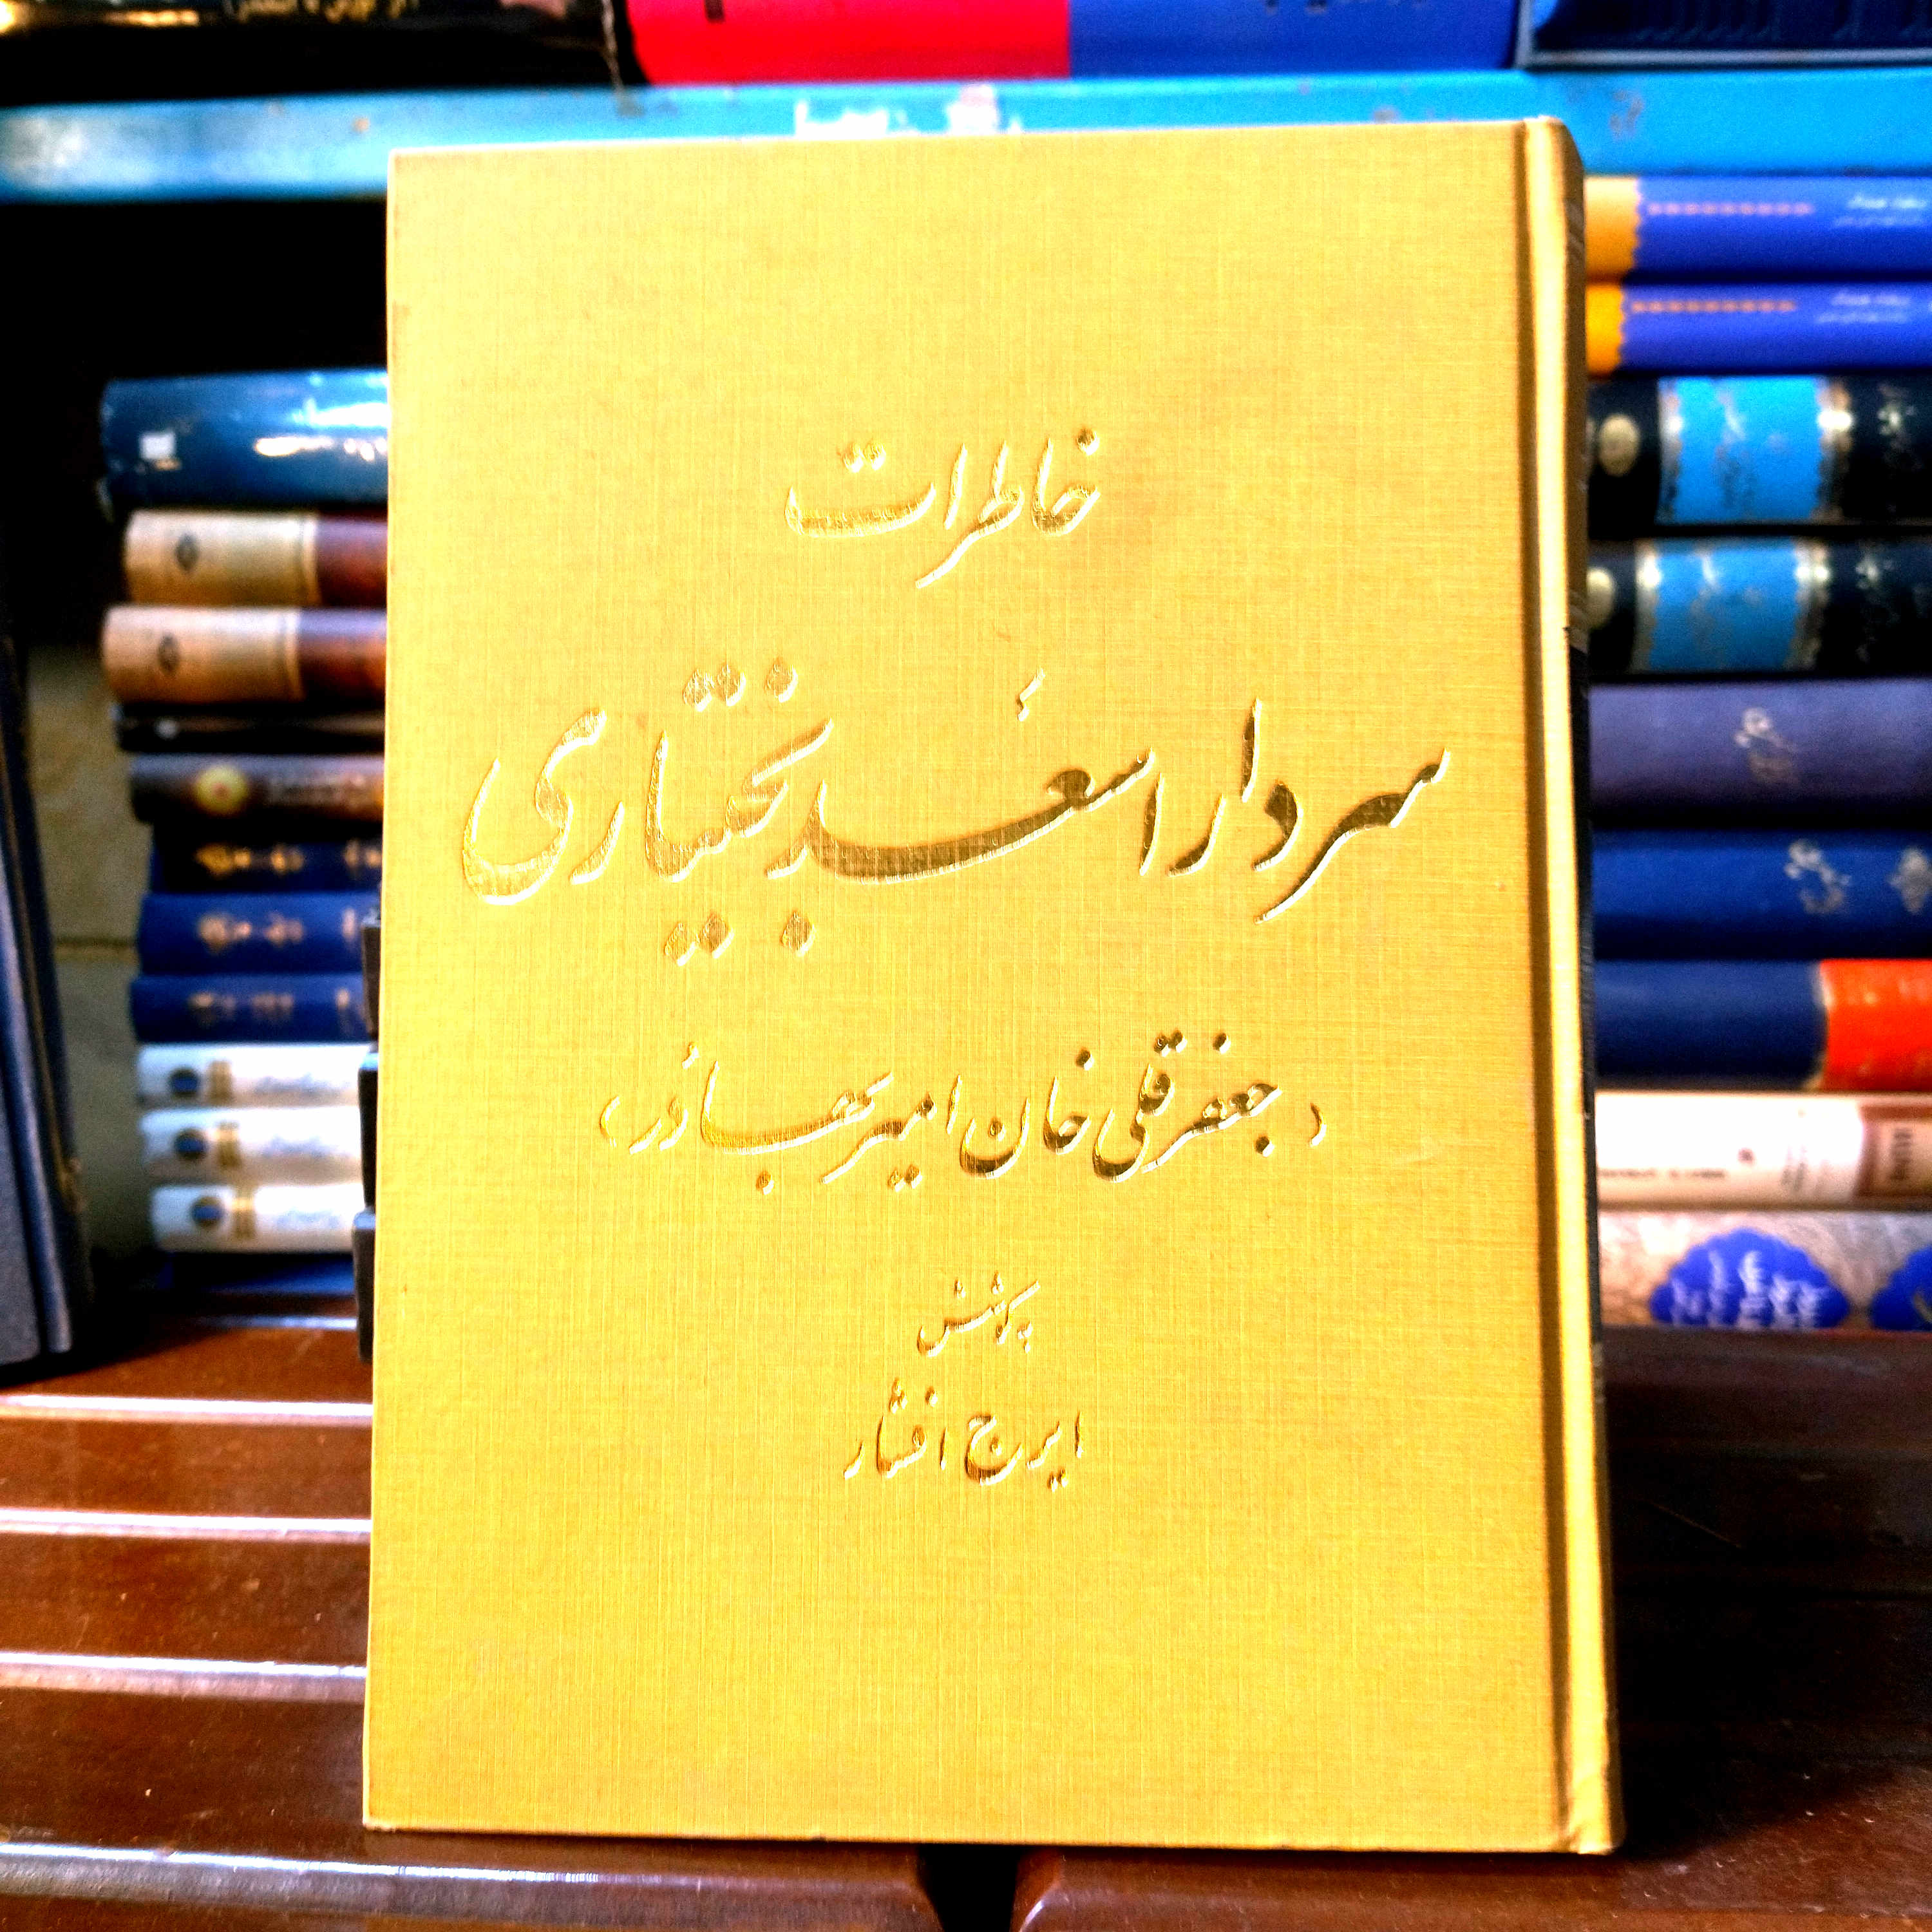 خاطرات
سردار اسعد بختیاری
(جعفر قلی خان امیر بهادُر)
بکوشش
ایرج افشار